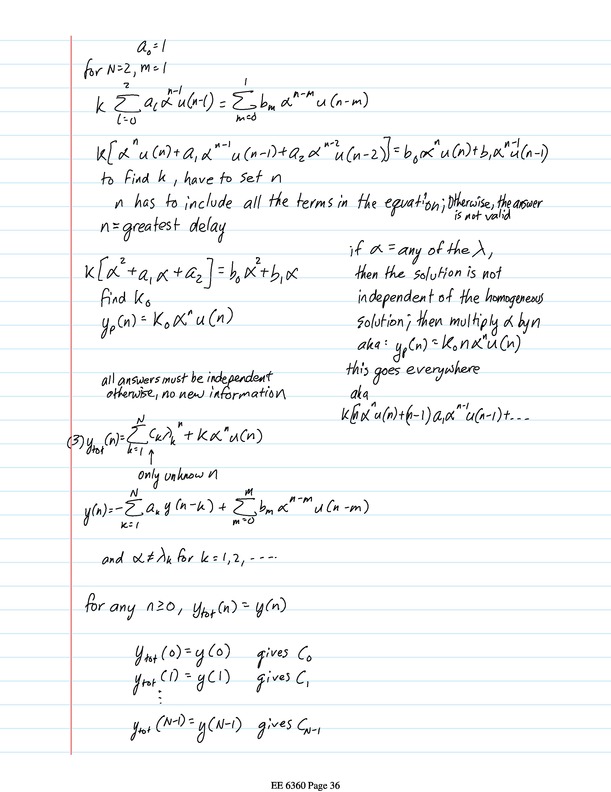 a₀=1
for N=2, m=1
k ∑_{l=0}^{2} a_l α^{n-l} u(n-l) = ∑_{m=0}^{1} b_m α^{n-m} u(n-m)
k[α^n u(n)+a₁ α^{n-1} u(n-1)+a₂ α^{n-2} u(n-2)]=b₀α^n u(n)+b₁α^{n-1} u(n-1)
to find k, have to set n
n has to include all the terms in the equation; otherwise, the answer
is not valid
n=greatest delay
k[α²+a₁α+a₂]=b₀α²+b₁α
find k₀
y_p(n)=K₀α^n u(n)
if α = any of the λ,
then the solution is not
independent of the homogeneous
solution; then multiply α by n
aka: y_p(n)=K₀nα^n u(n)
this goes everywhere
aka
k[nα^n u(n)+(n-1)a₁α^{n-1} u(n-1)+...
all answers must be independent
otherwise, no new information
(3) y_tot(n)=∑_{k=1}^{N} C_k λ_k^n + kα^n u(n)
↑
only unknown
y(n)=-∑_{k=1}^{N} a_k y(n-k) + ∑_{m=0}^{m} b_m α^{n-m} u(n-m)
and α≠λ_k for k=1,2, ----
for any n≥0, y_tot(n)=y(n)
y_tot(0)=y(0) gives C₀
y_tot(1)=y(1) gives C₁
⋮
y_tot(N-1)=y(N-1) gives C_{N-1}
EE 6360 Page 36